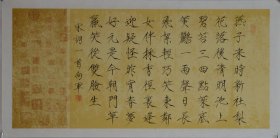 燕子來時新社梨
花落後清明池上
碧苔三四點葉底
黃鸝一兩聲日長
飛絮輕巧笑東鄰
女伴採桑徑裏逢
迎疑怪昨宵春夢
好元是今朝鬥草
贏笑從雙臉生
宋詞一首向軍